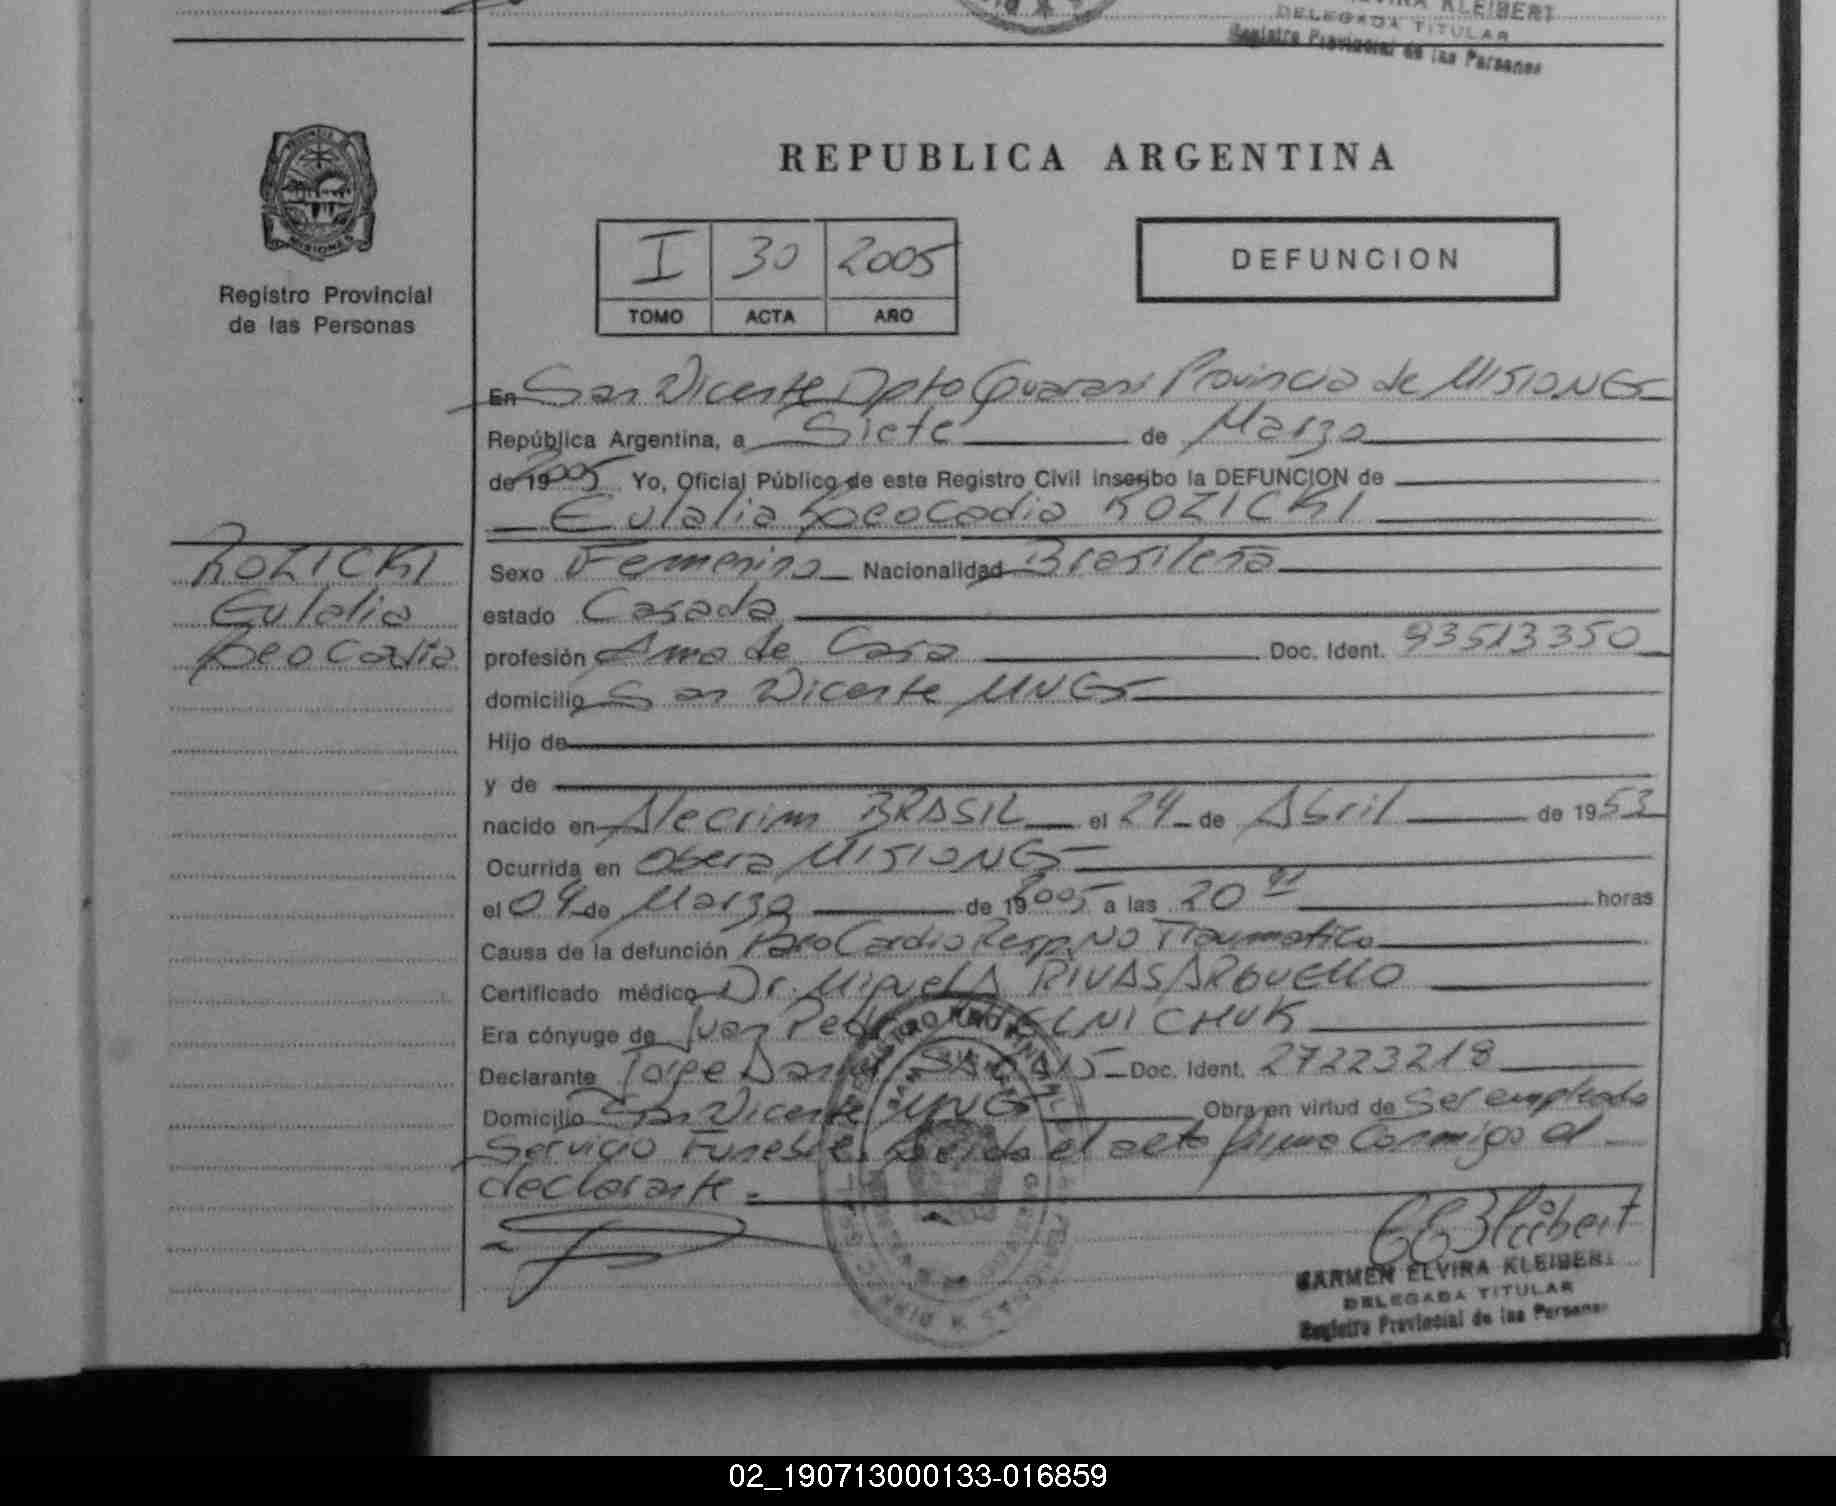 KLEIBERT
DELEGADA TITULAR
Registro Provincial de las Personas
MISIONES
Registro Provincial
de las Personas
REPUBLICA ARGENTINA
I 30 2005
TOMO ACTA AÑO
DEFUNCION
En San Vicente Dpto Guarani Provincia de MISIONES
República Argentina, a Siete de Marzo
de 19 2005 Yo, Oficial Público de este Registro Civil inscribo la DEFUNCION de
Eulalia Leocadia ROZICKI
ROZICKI
Eulalia
Leocadia
Sexo Femenino Nacionalidad Brasileña
estado Casada
profesión Ama de Casa Doc. Ident. 93513350
domicilio San Vicente MNES
Hijo de
y de
nacido en Alecrim BRASIL el 24 de Abril de 1953
Ocurrida en Obera MISIONES
el 04 de Marzo de 19 2005 a las 20 horas
Causa de la defunción Paro Cardio Resp. No Traumatico
Certificado médico Dr. Miguel A RIVAS ARGUELLO
Era cónyuge de Juan
Declarante Jorge Doc. Ident. 27223218
Domicilio San Vicente MNES Obra en virtud de ser empleado
Servicio Funebre Leida el acta firma Conmigo el
declarante.
CARMEN ELVIRA KLEIBERT
DELEGADA TITULAR
Registro Provincial de las Personas
02_190713000133-016859